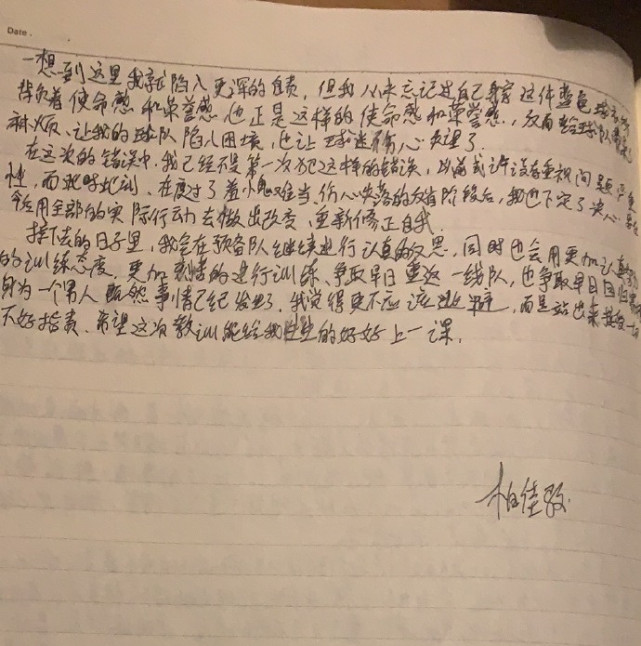 Date.
一想到这里我就陷入更深的自责,但我从未忘记过自己身穿这件蓝色球衣
背负着使命感和荣誉感,也正是这样的使命感和荣誉感,反而给球队带来
麻烦、让我的球队陷入困境,也让球迷伤心失望了
在这次的错误中,我已经不是第一次犯这样的错误,以前或许没有重视问题严重
性,而此时此刻、在度过了 难当、伤心失落的反省阶段后,我也下定了决心
用全部的实际行动去做出改变、重新修正自我.
接下去的日子里,我会在预备队继续进行认真的反思,同时也会用更加认真
的训练态度,更加 的进行训练、争取早日重返一线队,也争取早日
身为一个男人既然事情已经发生了,我觉得更不应该逃避,而是站出来接受一切
不好指责、希望这次教训能给我 的好好上一课.
柏佳骏